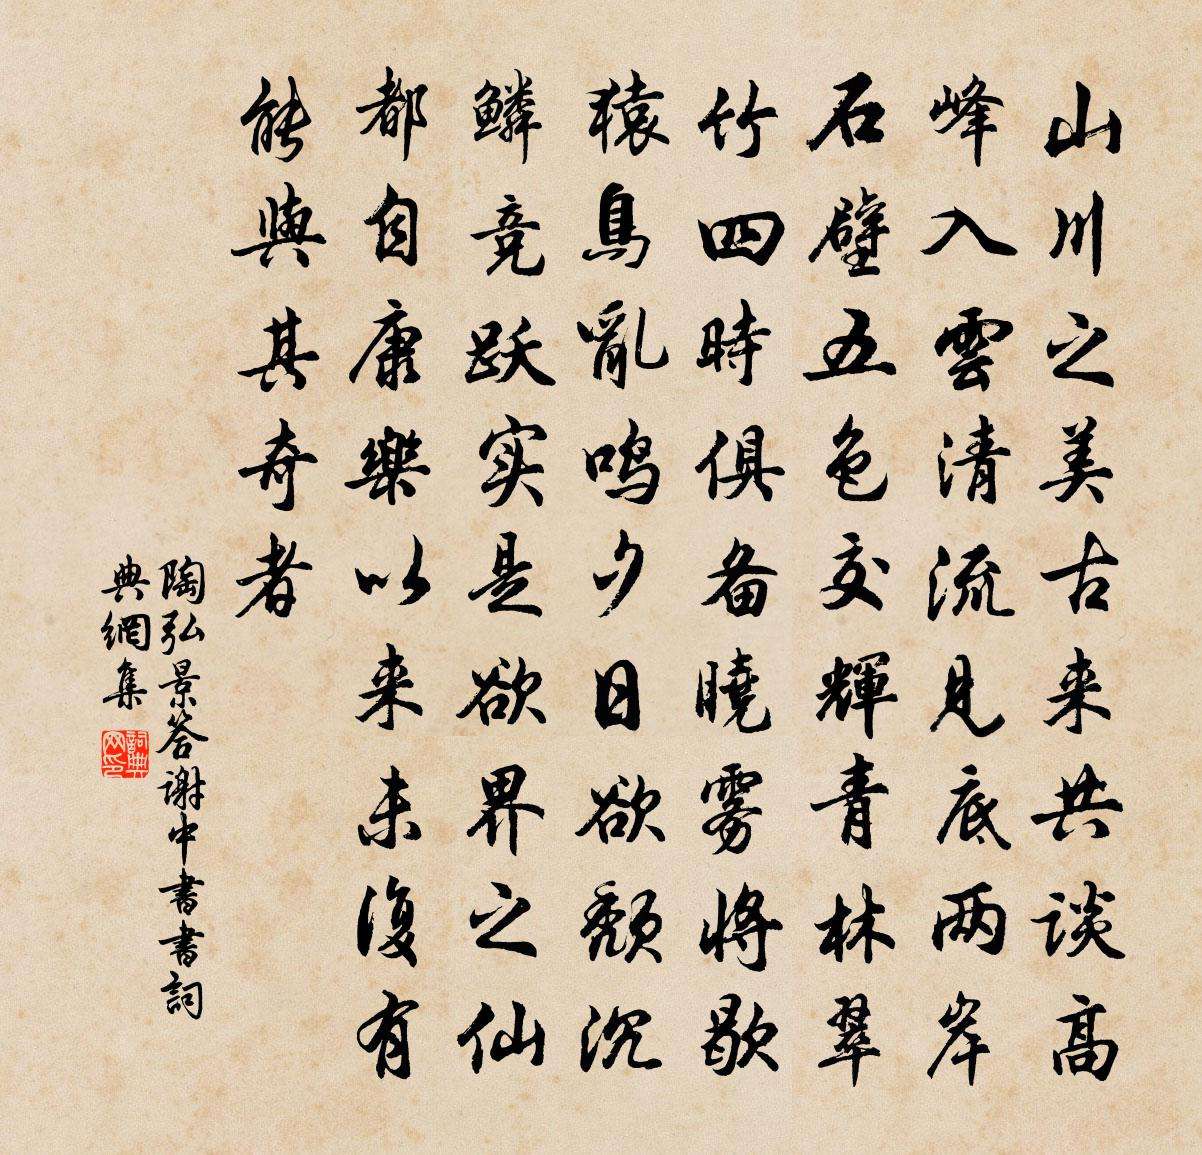 山川之美古来共谈高
峰入雲清流見底两岸
石壁五色交輝青林翠
竹四時俱备曉雾将歇
猿鳥亂鸣夕日欲颓沉
鳞竞跃实是欲界之仙
都自康樂以来未復有
能與其奇者
陶弘景答谢中書書詞
典網集
詞典网印